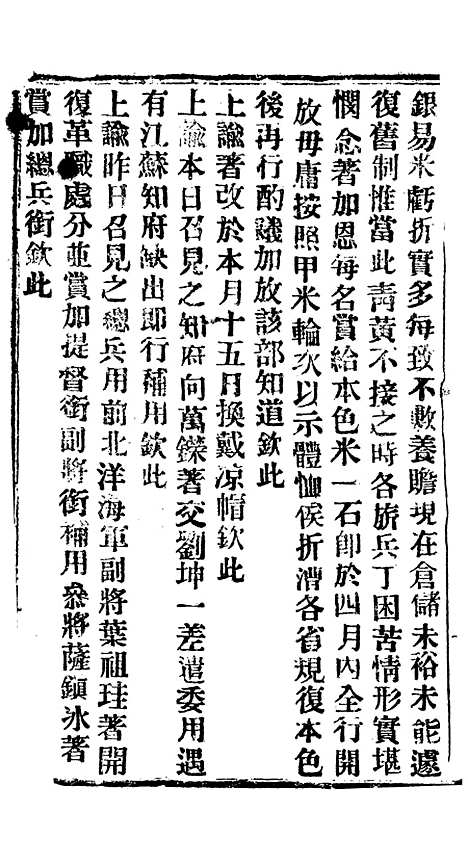 銀易米虧折實多每致不敷養贍現在倉儲未裕未能遽
復舊制惟當此靑黃不接之時各旅兵丁困苦情形實堪
憫念著加恩每名賞給本色米一石卽於四月內全行開
放毋庸按照甲米輪次以示體恤俟折漕各省規復本色
後再行酌議加放該部知道欽此
上諭著改於本月十五日換戴凉帽欽此
上諭本日召見之知府向萬鑅著交劉坤一差遣委用遇
有江蘇知府缺出卽行補用欽此
上諭昨日召見之總兵用前北洋海軍副將葉祖珪著開
復革職處分並賞加提督銜副將銜補用叅將薩鎮氷著
賞加總兵銜欽此